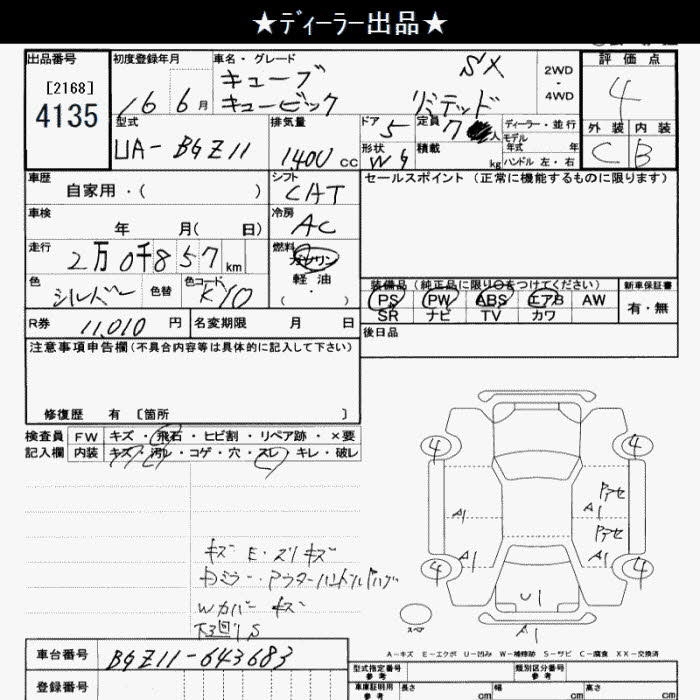 ★ディーラー出品★
出品番号 初度登録年月 車名・グレード 評価点
[2168] キューブ SX 2WD
4135 16 6月 キュービック リミテッド ・ 4WD 4
型式 排気量 ドア 5 定員 7 人 ディーラー・並行 外装 内装
UA-BGZ11 1400 cc 形状 W 積載 kg モデル年式 年 C B
ハンドル 左・右
車歴 自家用・( ) シフト CAT セールスポイント (正常に機能するものに限ります)
車検 年 月( 日) 冷房 AC
走行 2万0千857km 燃料 ガソリン
軽油
( ・ )
色 シルバー 色替 色コード KY0
装備品 (純正品に限り○をつけてください) 新車保証書
PS PW ABS エアB AW 有・無
SR ナビ TV カワ
R券 11,010 円 名変期限 月 日 後日品
注意事項申告欄(不具合内容等は具体的に記入して下さい)
修復歴 有 [箇所 ]
検査員 FW キズ・飛石・ヒビ割・リペア跡・×要
記入欄 内装 キズ・汚レ・コゲ・穴・スレ・キレ・破レ
4 4
Pアセ
A1 A1
Pアセ
A1 A1
4 4
U1
スペア
A1
キズ E・スリキズ
Wカバー キズ
下回りS
A-キズ E-エクボ U-凹み W-補修跡 S-サビ C-腐食 XX-交換済
車台番号 BGZ11-643683
型式指定番号 参考 類別区分番号 参考
登録番号
車庫証明用 参考 長さ cm 幅 cm 高さ cm